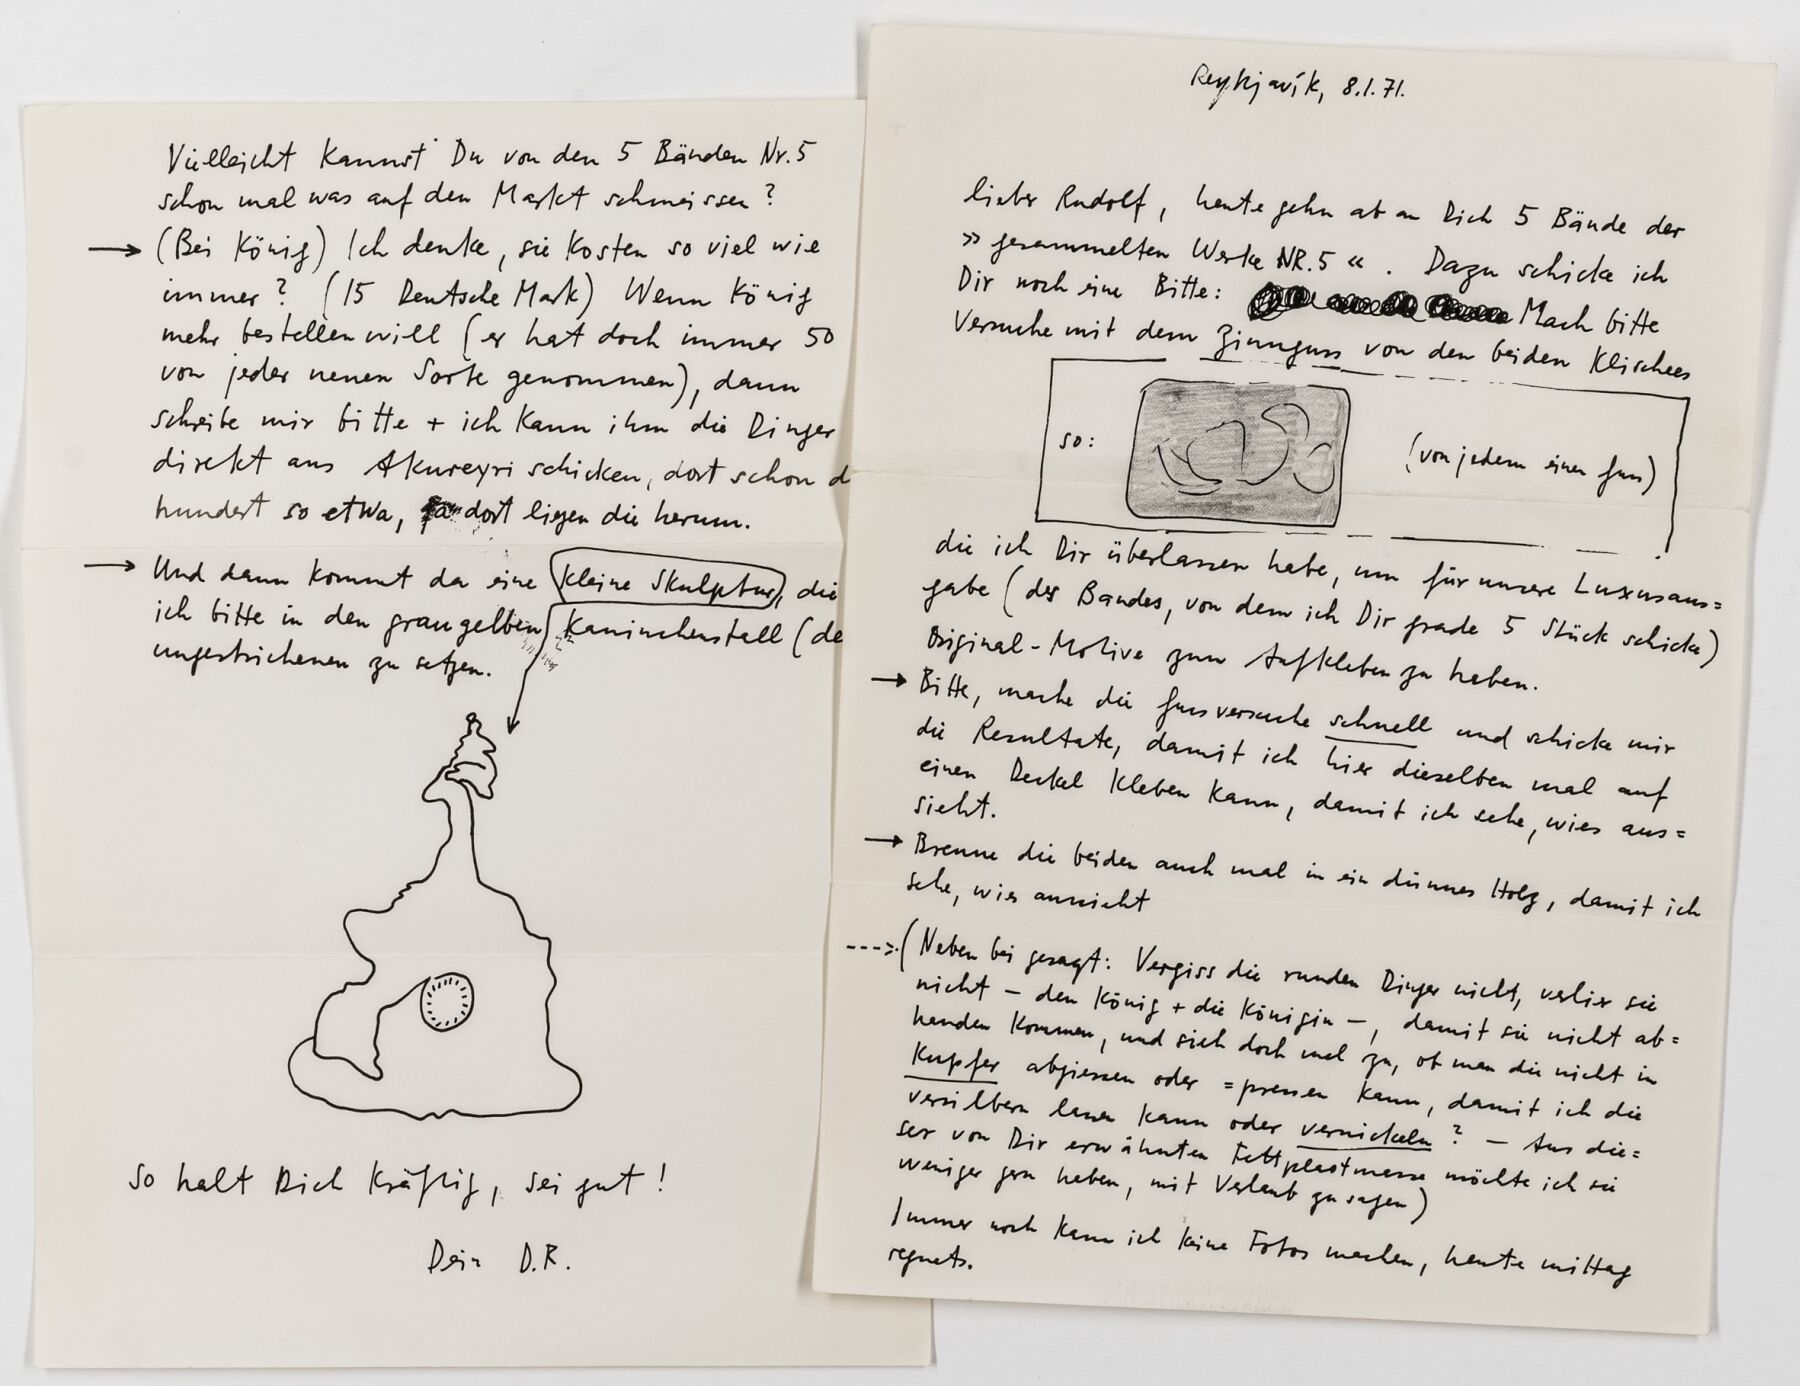 Reykjavík, 8.1.71.
lieber Rudolf, heute gehn ab an Dich 5 Bände der
»gesammelten Werke NR.5«. Dazu schicke ich
Dir noch eine Bitte: Mach bitte
Versuche mit dem Zinnguss von den beiden Klischees
so: (von jedem einen guss)
die ich Dir überlassen habe, um für unsere Luxusaus=
gabe (des Bandes, von dem ich Dir grade 5 Stück schicke)
Original-Motive zum Aufkleben zu haben.
→ Bitte, mache die gussversuche schnell und schicke mir
die Resultate, damit ich hier dieselben mal auf
einen Deckel kleben kann, damit ich sehe, wies aus=
sieht.
→ Brenne die beiden auch mal in ein dünnes Holz, damit ich
sehe, wies aussieht
---> (Neben bei gesagt: Vergiss die runden Dinger nicht, verlier sie
nicht – den König + die Königin –, damit sie nicht ab=
handen kommen, und sieh doch mal zu, ob man die nicht in
Kupfer abgiessen oder =pressen kann, damit ich die
versilbern lassen kann oder vernickeln? – Aus die=
ser von Dir erwähnten Fettplastmasse möchte ich sie
weniger gern haben, mit Verlaub zu sagen)
Immer noch kann ich keine Fotos machen, heute mittag
regnets.
Vielleicht kannst Du von den 5 Bänden Nr.5
schon mal was auf den Markt schmeissen?
→ (Bei König) Ich denke, sie kosten so viel wie
immer? (15 Deutsche Mark) Wenn König
mehr bestellen will (er hat doch immer 50
von jeder neuen Sorte genommen), dann
schreibe mir bitte + ich kann ihm die Dinger
direkt aus Akureyri schicken, dort schon d
hundert so etwa, dort liegen die herum.
→ Und dann kommt da eine kleine Skulptur, die
ich bitte in den graugelben Kaninchenstall (de
ungestrichenen zu setzen.
So halt Dich kräftig, sei gut!
Dein D.R.